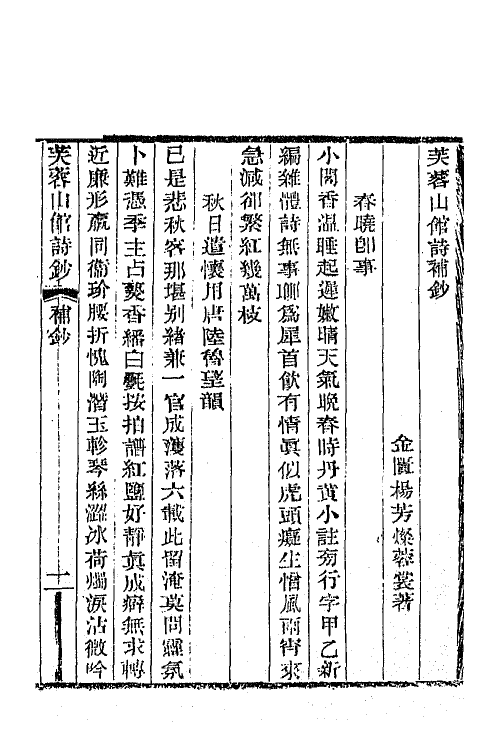 芙蓉山館詩補鈔
金匱楊芳燦蓉裳著
春曉卽事
小閣香溫睡起遲嫩晴天氣晚春時丹黃小註芴行字甲乙新
編雜體詩無事聊爲犀首飲有情眞似虎頭癡生憎風雨宵來
急減卻繁紅幾萬枝
秋日遣懷用唐陸魯望韻
已是悲秋客那堪别緒兼一官成濩落六載此留淹莫問靈氛
卜難憑季主占爇香繙白氎按拍譜紅鹽好靜眞成癖無求轉
近廉形羸同衞玠腰折愧陶潛玉軫琴絲澀冰荷燭淚沾微吟
芙蓉山館詩鈔 補鈔 一